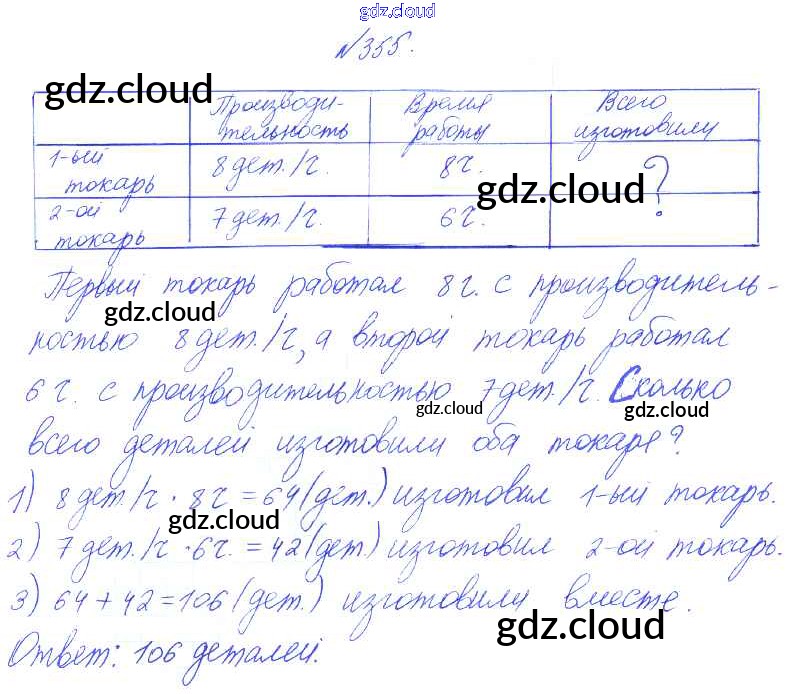 gdz.cloud
№355.
gdz.cloud
Производи- Время Всего
тельность работы изготовили
1-ый токарь 8 дет./ч. 8 ч. ?
gdz.cloud
2-ой токарь 7 дет./ч. 6 ч.
Первый токарь работал 8 г. с производитель-
gdz.cloud
ностью 8 дет./ч, а второй токарь работал
6 ч. с производительностью 7 дет./ч. Сколько
gdz.cloud gdz.cloud
всего деталей изготовили оба токаря?
1) 8 дет./ч · 8 ч = 64 (дет.) изготовил 1-ый токарь.
gdz.cloud
2) 7 дет./ч · 6 ч. = 42 (дет.) изготовил 2-ой токарь.
3) 64 + 42 = 106 (дет.) изготовили вместе.
gdz.cloud
Ответ: 106 деталей.